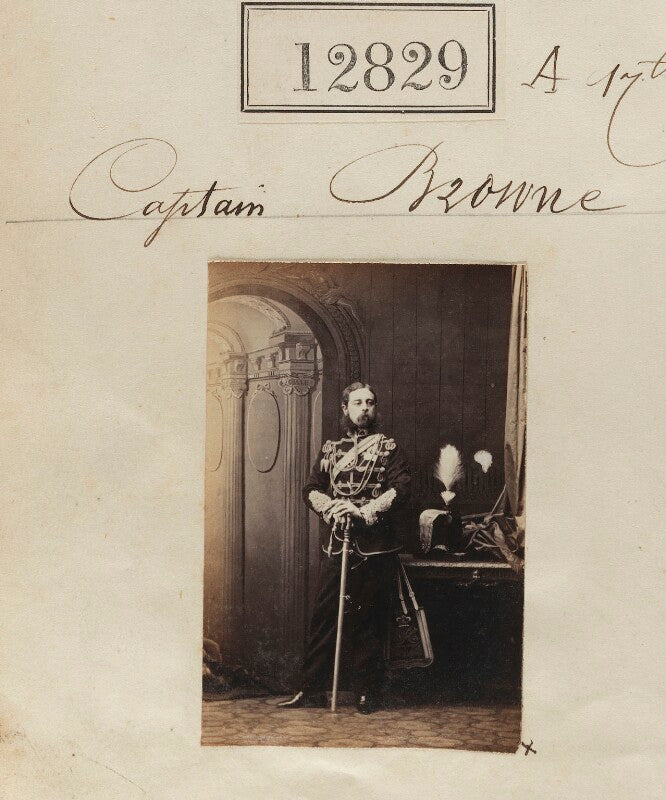 12829
A 17t
Captain Browne
x